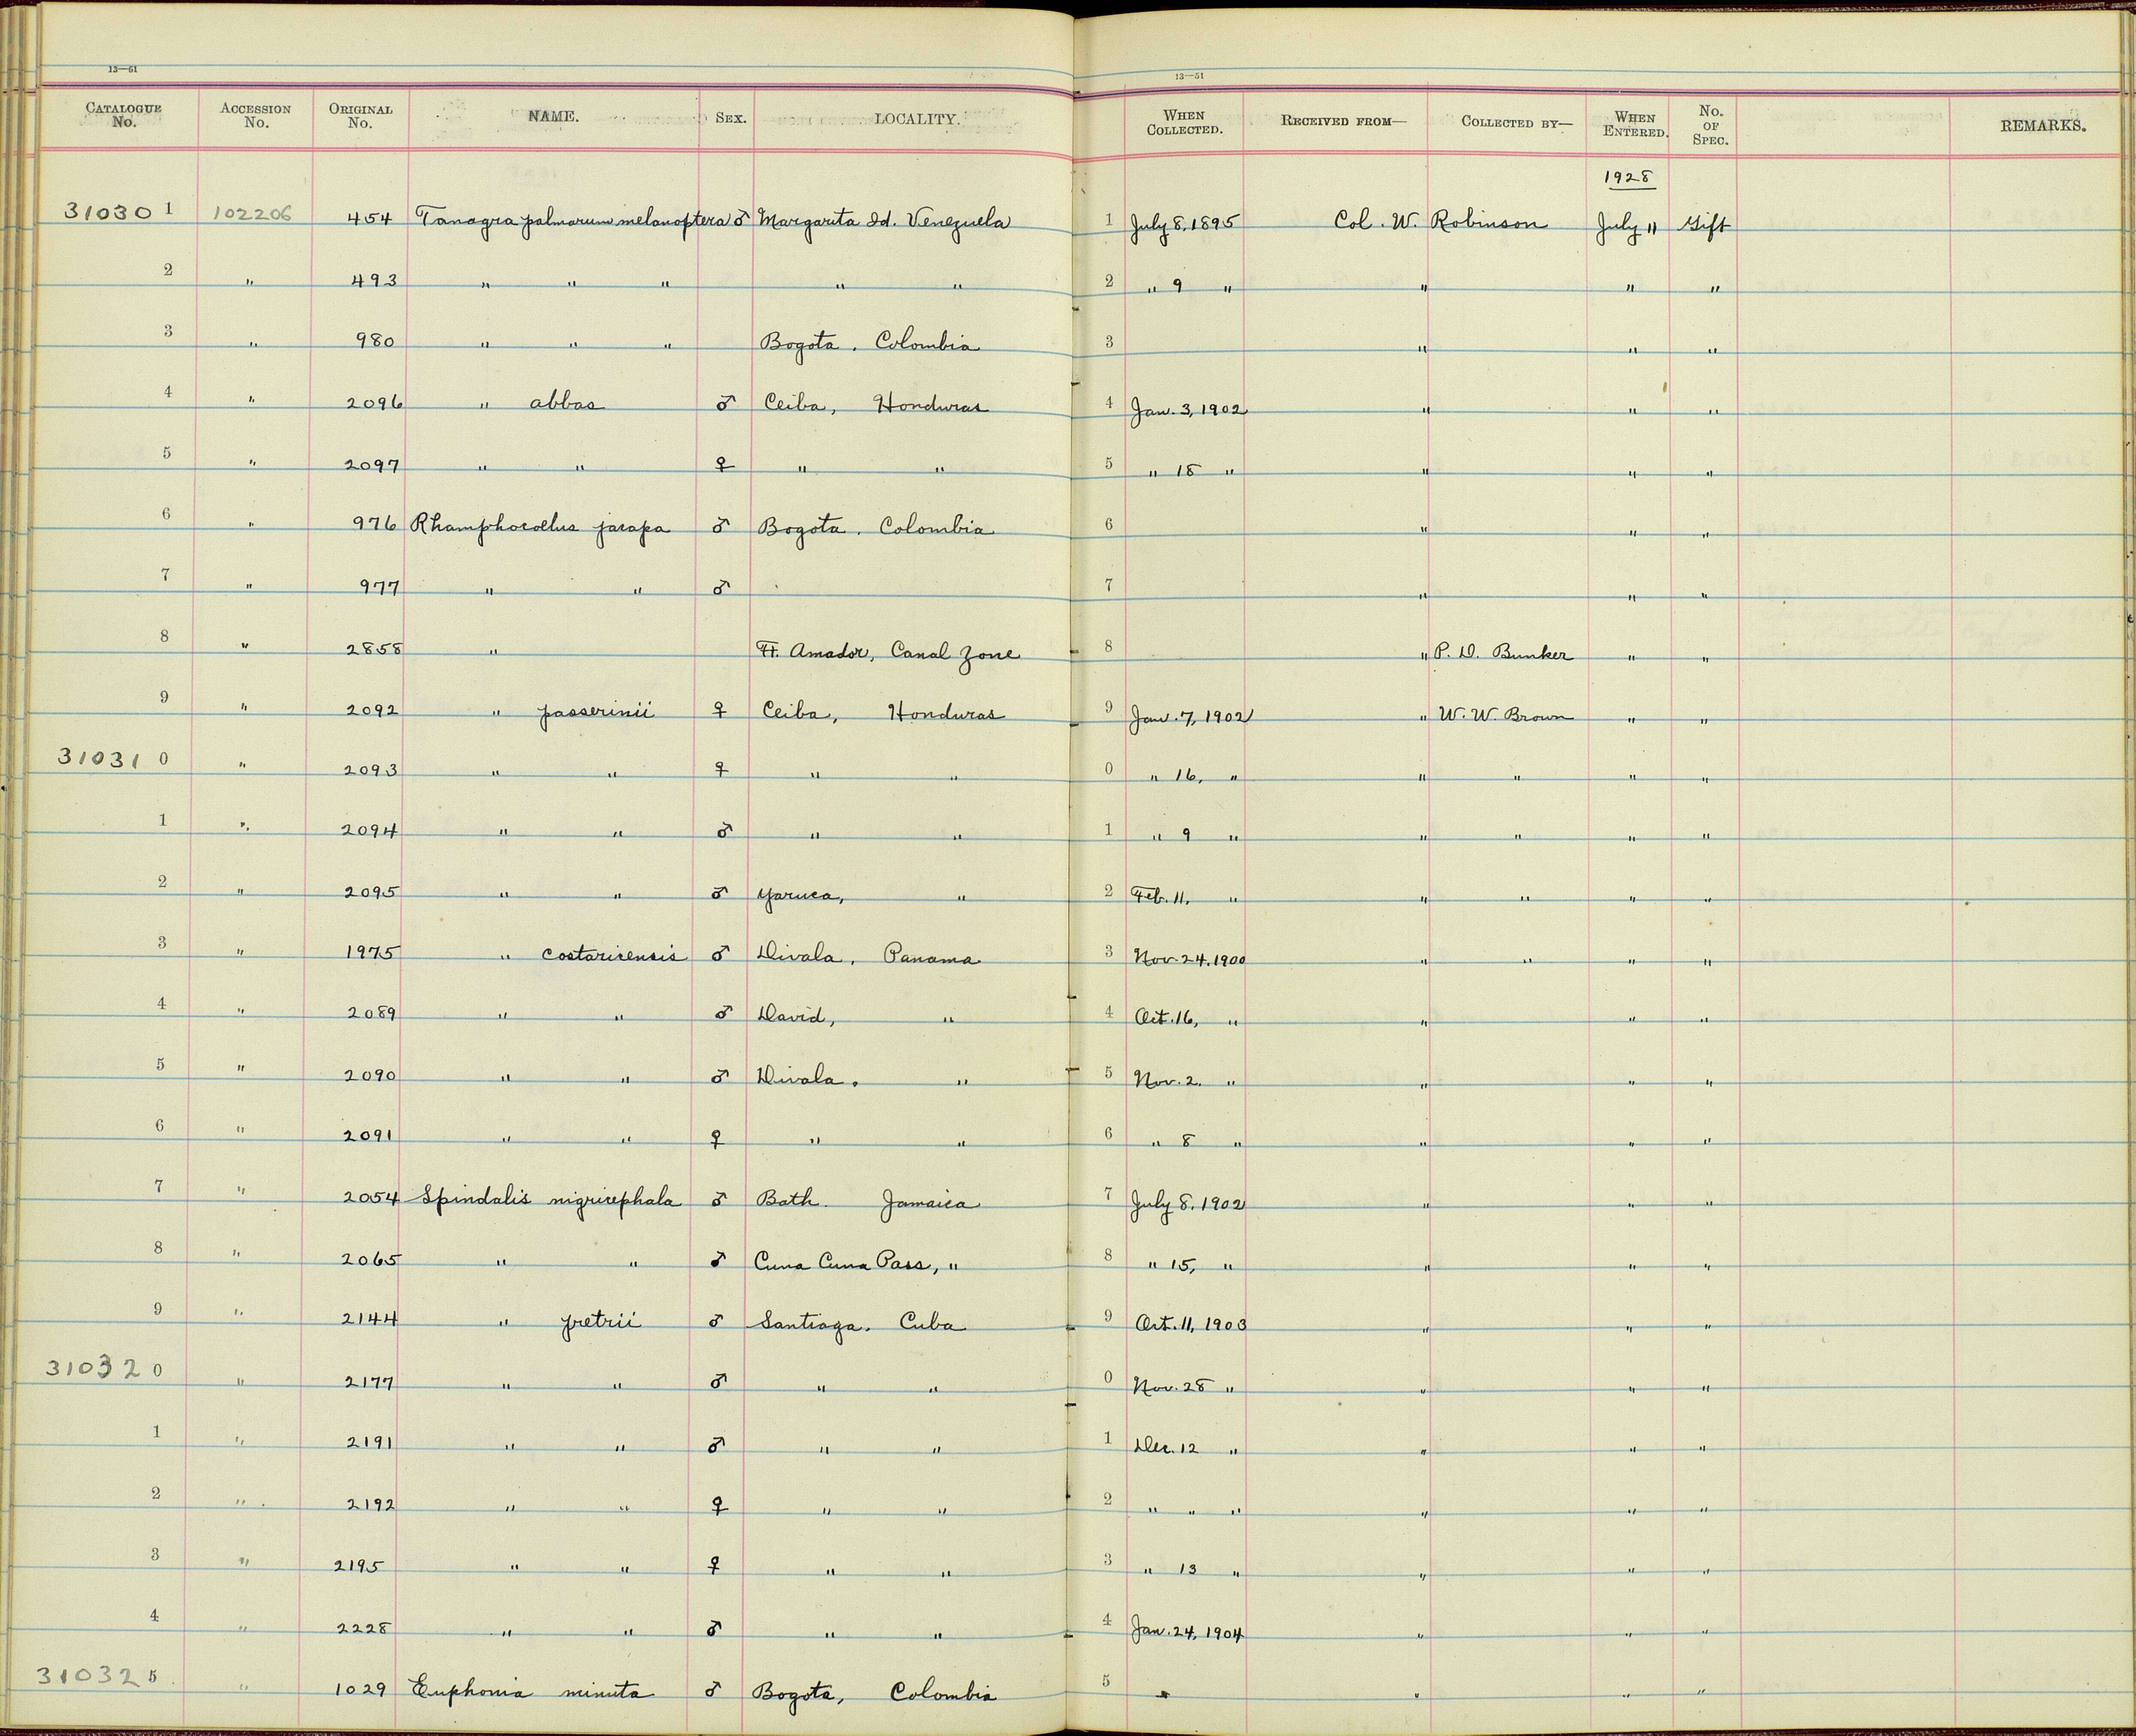 13—51
13—51
CATALOGUE No. ACCESSION No. ORIGINAL No. NAME. SEX. LOCALITY. WHEN COLLECTED. RECEIVED FROM— COLLECTED BY— WHEN ENTERED. No. OF SPEC. REMARKS.
1928
31030 1 102206 454 Tanagra palmarum melanoptera ♂ Margarita Id. Venezuela 1 July 8, 1895 Col. W. Robinson July 11 Gift
2 " 493 " " " " " 2 " 9 " " " "
3 " 980 " " " Bogota. Colombia 3 " " "
4 " 2096 " abbas ♂ Ceiba, Honduras 4 Jan. 3, 1902 " " "
5 " 2097 " " ♀ " " 5 " 18 " " " "
6 " 976 Rhamphocoelus jacapa ♂ Bogota. Colombia 6 " " "
7 " 977 " " ♂ 7 " " "
8 " 2858 " Ft. Amador, Canal Zone 8 " P. D. Bunker " "
9 " 2092 " passerinii ♀ Ceiba, Honduras 9 Jan. 7, 1902 " W. W. Brown " "
31031 0 " 2093 " " ♀ " " 0 " 16, " " " " "
1 " 2094 " " ♂ " " 1 " 9 " " " " "
2 " 2095 " " ♂ Yaruca, " 2 Feb. 11. " " " " "
3 " 1975 " costaricensis ♂ Divala, Panama 3 Nov. 24. 1900 " " " "
4 " 2089 " " ♂ David, " 4 Oct. 16, " " " "
5 " 2090 " " ♂ Divala. " 5 Nov. 2. " " " "
6 " 2091 " " ♀ " " 6 " 8 " " " "
7 " 2054 Spindalis nigricephala ♂ Bath. Jamaica 7 July 8. 1902 " " "
8 " 2065 " " ♂ Cuna Cuna Pass, " 8 " 15, " " " "
9 " 2144 " pretrii ♂ Santiago. Cuba 9 Oct. 11, 1903 " " "
31032 0 " 2177 " " ♂ " " 0 Nov. 28 " " " "
1 " 2191 " " ♂ " " 1 Dec. 12 " " " "
2 " 2192 " " ♀ " " 2 " " " " " "
3 " 2195 " " ♀ " " 3 " 13 " " " "
4 " 2228 " " ♂ " " 4 Jan. 24, 1904 " " "
31032 5 " 1029 Euphonia minuta ♂ Bogota, Colombia 5 " " "